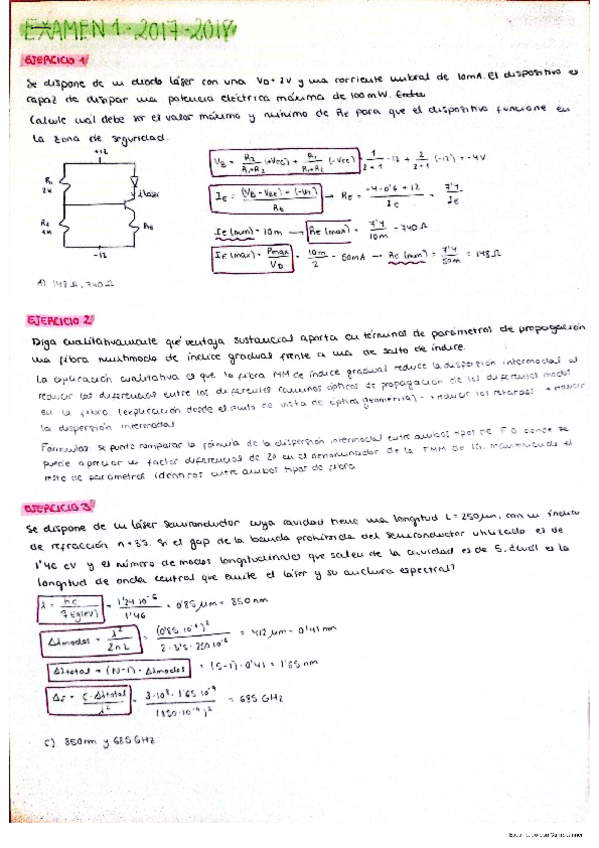 EXAMEN 1 - 2017-2018
EJERCICIO 1
Se dispone de un diodo láser con una VD = 2V y una corriente umbral de 10mA. El dispositivo es
capaz de disipar una potencia eléctrica máxima de 100mW.
Calcule cuál debe ser el valor máximo y mínimo de RE para que el dispositivo funcione en
la zona de seguridad.
+12
R1
2k
láser
R2
1k
RE
-12
VB = R2/(R1+R2) (+VCC) + R1/(R1+R2) (-VCC) = 1/(2+1) · 12 + 2/(2+1) (-12) = -4V
IE = (VB - VBE) - (-VCC) / RE → RE = (-4 - 0'6 + 12) / IE = 7'4 / IE
IE (min) = 10m → RE (max) = 7'4 / 10m = 740 Ω
IE (max) = Pmax / VD = 50mA → RE (min) = 7'4 / 50m = 148 Ω
A) 148 Ω, 740 Ω
EJERCICIO 2
Diga cualitativamente qué ventaja sustancial aporta en términos de parámetros de propagación
una fibra multimodo de índice gradual frente a una de salto de índice.
La explicación cualitativa es que la fibra MM de índice gradual reduce la dispersión intermodal al
reducir las diferencias entre los diferentes caminos ópticos de propagación de los diferentes modos
en la fibra (explicación desde el punto de vista de óptica geométrica) → reducir los retardos → reducir
la dispersión intermodal
Fórmulas: se puede comparar la fórmula de la dispersión intermodal entre ambos tipos de F.O. donde se
puede apreciar un factor diferencias de 20 en el denominador de la FMM de I.G. manteniendo el
resto de parámetros idénticos entre ambos tipos de fibra
EJERCICIO 3
Se dispone de un láser semiconductor cuya cavidad tiene una longitud L = 250μm, con un índice
de refracción n = 3'5. Si el gap de la banda prohibida del semiconductor utilizado es de
1'46 eV y el número de modos longitudinales que salen de la cavidad es de 5. ¿Cuál es la
longitud de onda central que emite el láser y su anchura espectral?
= 1'24·10^-6 / 1'46 = 0'85 μm = 850 nm
Δλmodos = λ² / 2nL = (0'85·10^-6)² / 2·3'5·250·10^-6 = 0'41 nm
Δλtotal = (N-1) · Δλmodos = (5-1) · 0'41 = 1'65 nm
Δf = C · Δλtotal / λ² = 3·10^8 · 1'65·10^-9 = 685 GHz
C) 850nm y 685 GHz